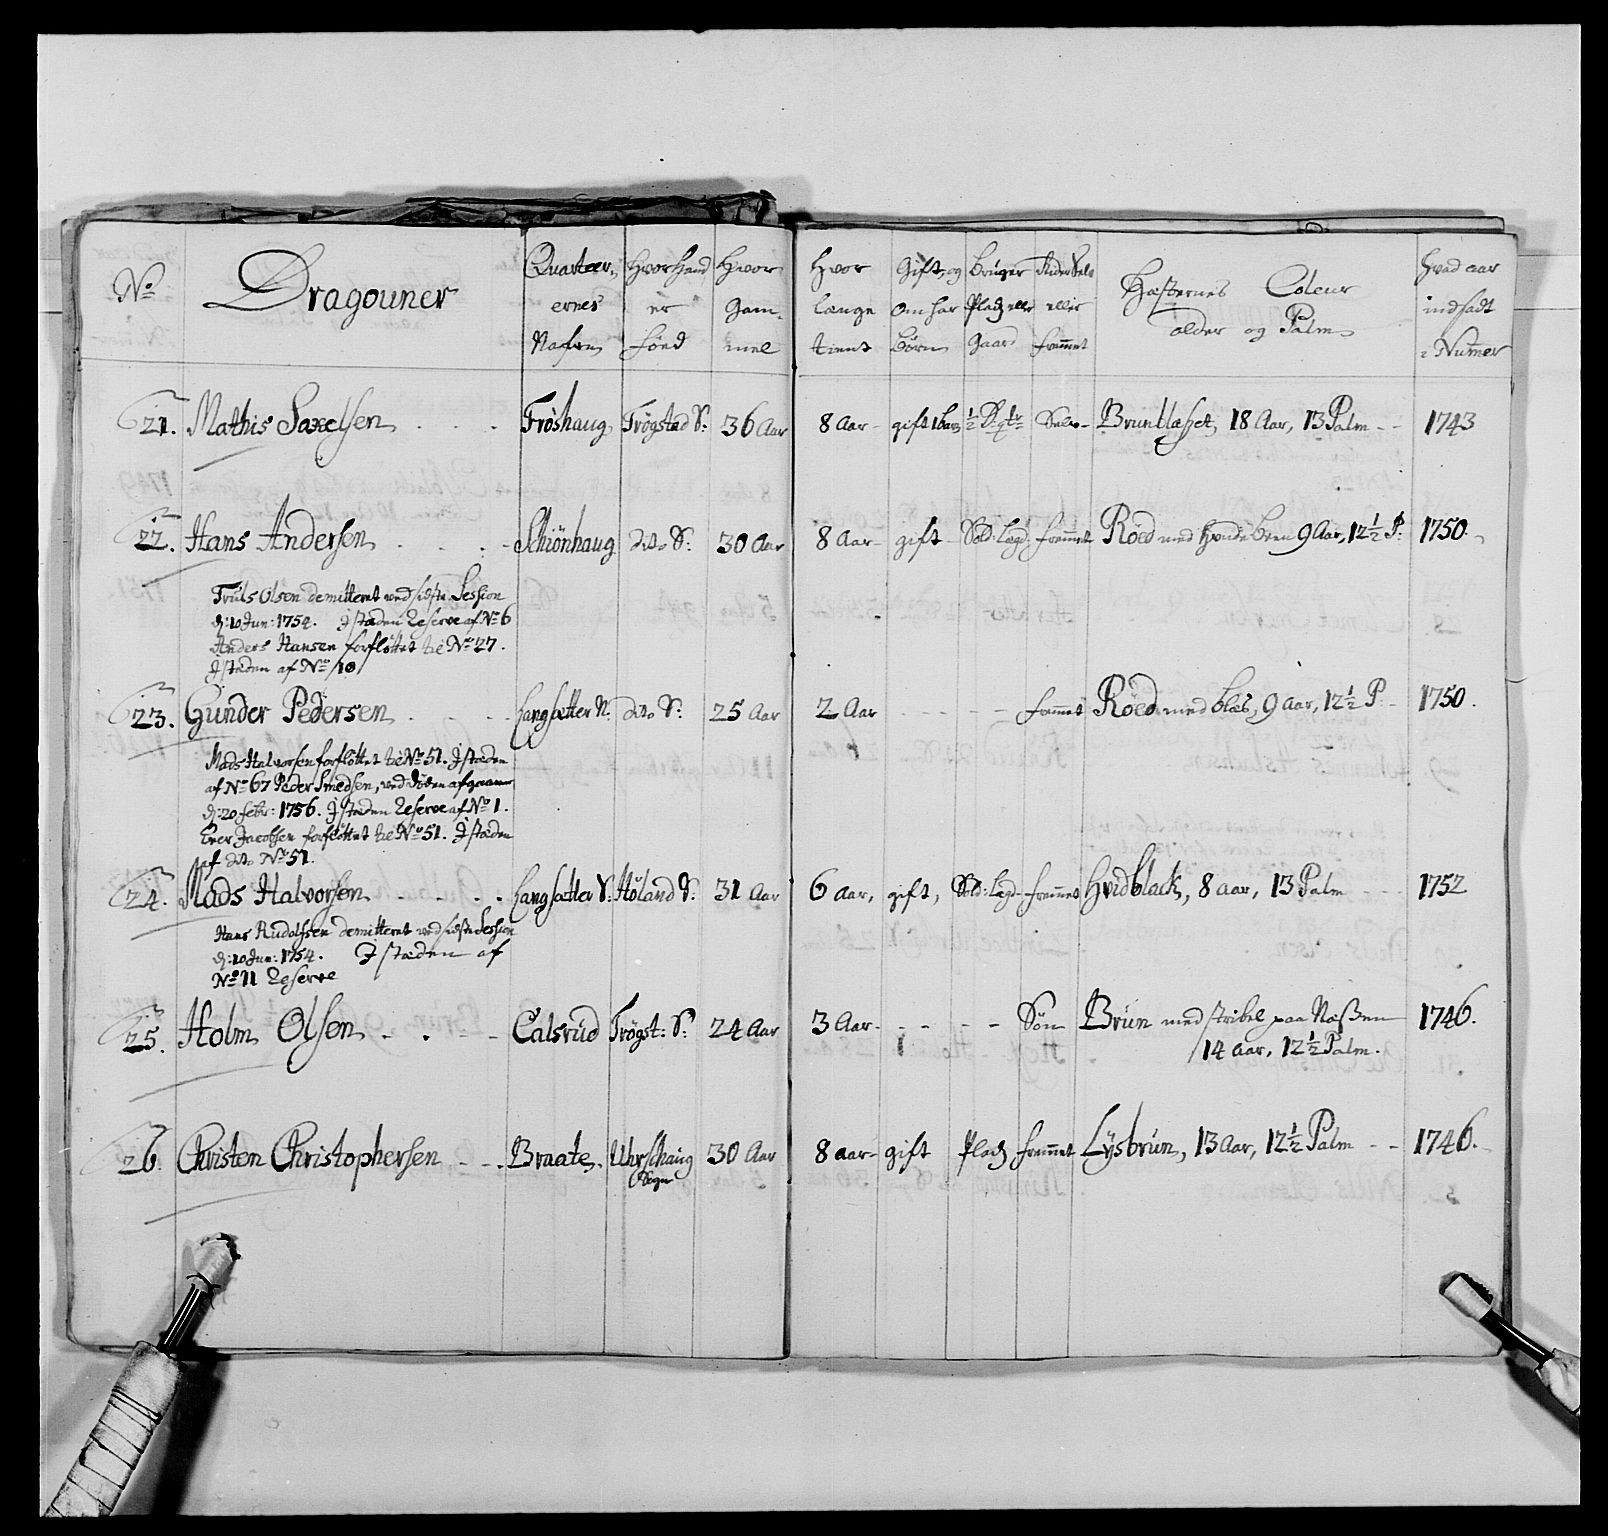 No Dragouner Quarteer- ernes Nafn Hvor Hand er föed Hvor Gam- mel Hvor længe tient Gift, og om har Börn Bruger Pladz eller Gaard Rider Selv eller fremmet Hæsternes Coleur alder og Palm Hvad aar indsadt i Numer
21. Mathis Saxelsen Fröshaug Trögstad S: 36 Aar 8 Aar gift 1 barn ½ Selv Bruntlæset, 18 Aar, 13 Palm 1743
22. Hans Andersen Schiönhaug dito S: 30 Aar 8 Aar gift Sold: Legd: fremmet Röed med hvide Been 9 Aar, 12½ P: 1750.
Truls Olsen demitteret ved sidste Session
d: 10 Jun: 1754. J stæden Reserve af No 6
Anders Hansen forflöttet til No 27.
J stæden af No 10
23. Gunder Pedersen Langsætter N: dito S: 25 Aar 2 Aar fremmet Röed med blas, 9 aar, 12½ P. 1750.
Mads Halvorsen forflöttet til No 51. J stæden
af No 67 Peder Smedsen, ved döden afgaaen
d: 20 Febr: 1756. J stæden Reserve af No 1.
Iver Jacobsen forflöttet til No 51. J stæden
af dito No 51.
24. Mads Halvorsen Langsætter S: Höland S: 31 Aar 6 aar, gift, Sold: Legd fremmet Hvidblack, 8 aar, 13 Palm 1752
Hans Rudolfsen demitteret ved sidste Session
d: 10 Jun: 1754. J stæden af
No 11 Reserve
25. Holm Olsen Calsrud Trögst: S: 24 Aar 3 Aar Sön Brun med stribel paa Nasen 1746.
14 aar, 12½ Palm.
26. Christen Christophersen Braate Uhrschaug 30 Aar 8 aar gift Pladz fremmet Lysbrun, 13 Aar, 12½ Palm 1746.
Sogn